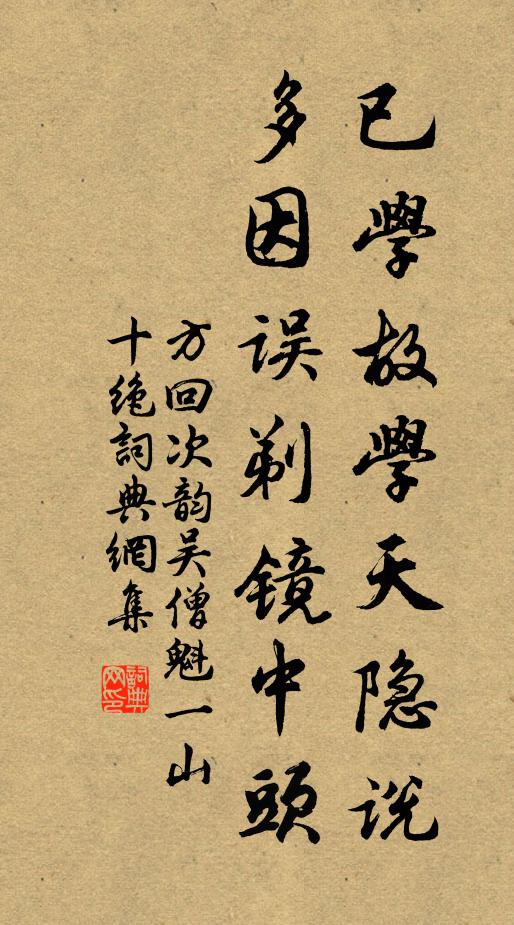 已學故學天隐说
多因误剃镜中頭
方回次韵吴僧魁一山
十绝詞典網集
詞典
网印